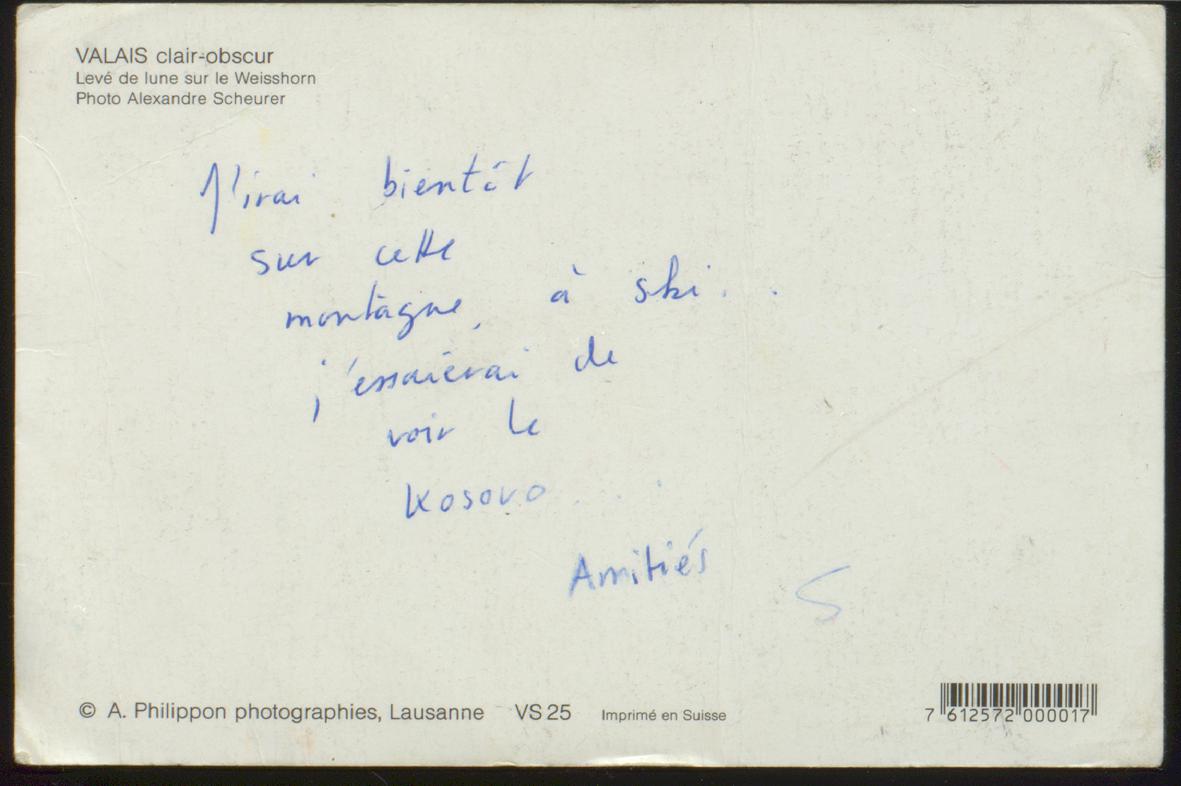 VALAIS clair-obscur
Levé de lune sur le Weisshorn
Photo Alexandre Scheurer
J'irai bientôt
sur cette
montagne, à ski...
j'essaierai de
voir le
Kosovo...
Amitiés
S
© A. Philippon photographies, Lausanne VS 25 Imprimé en Suisse
7 612572 000017